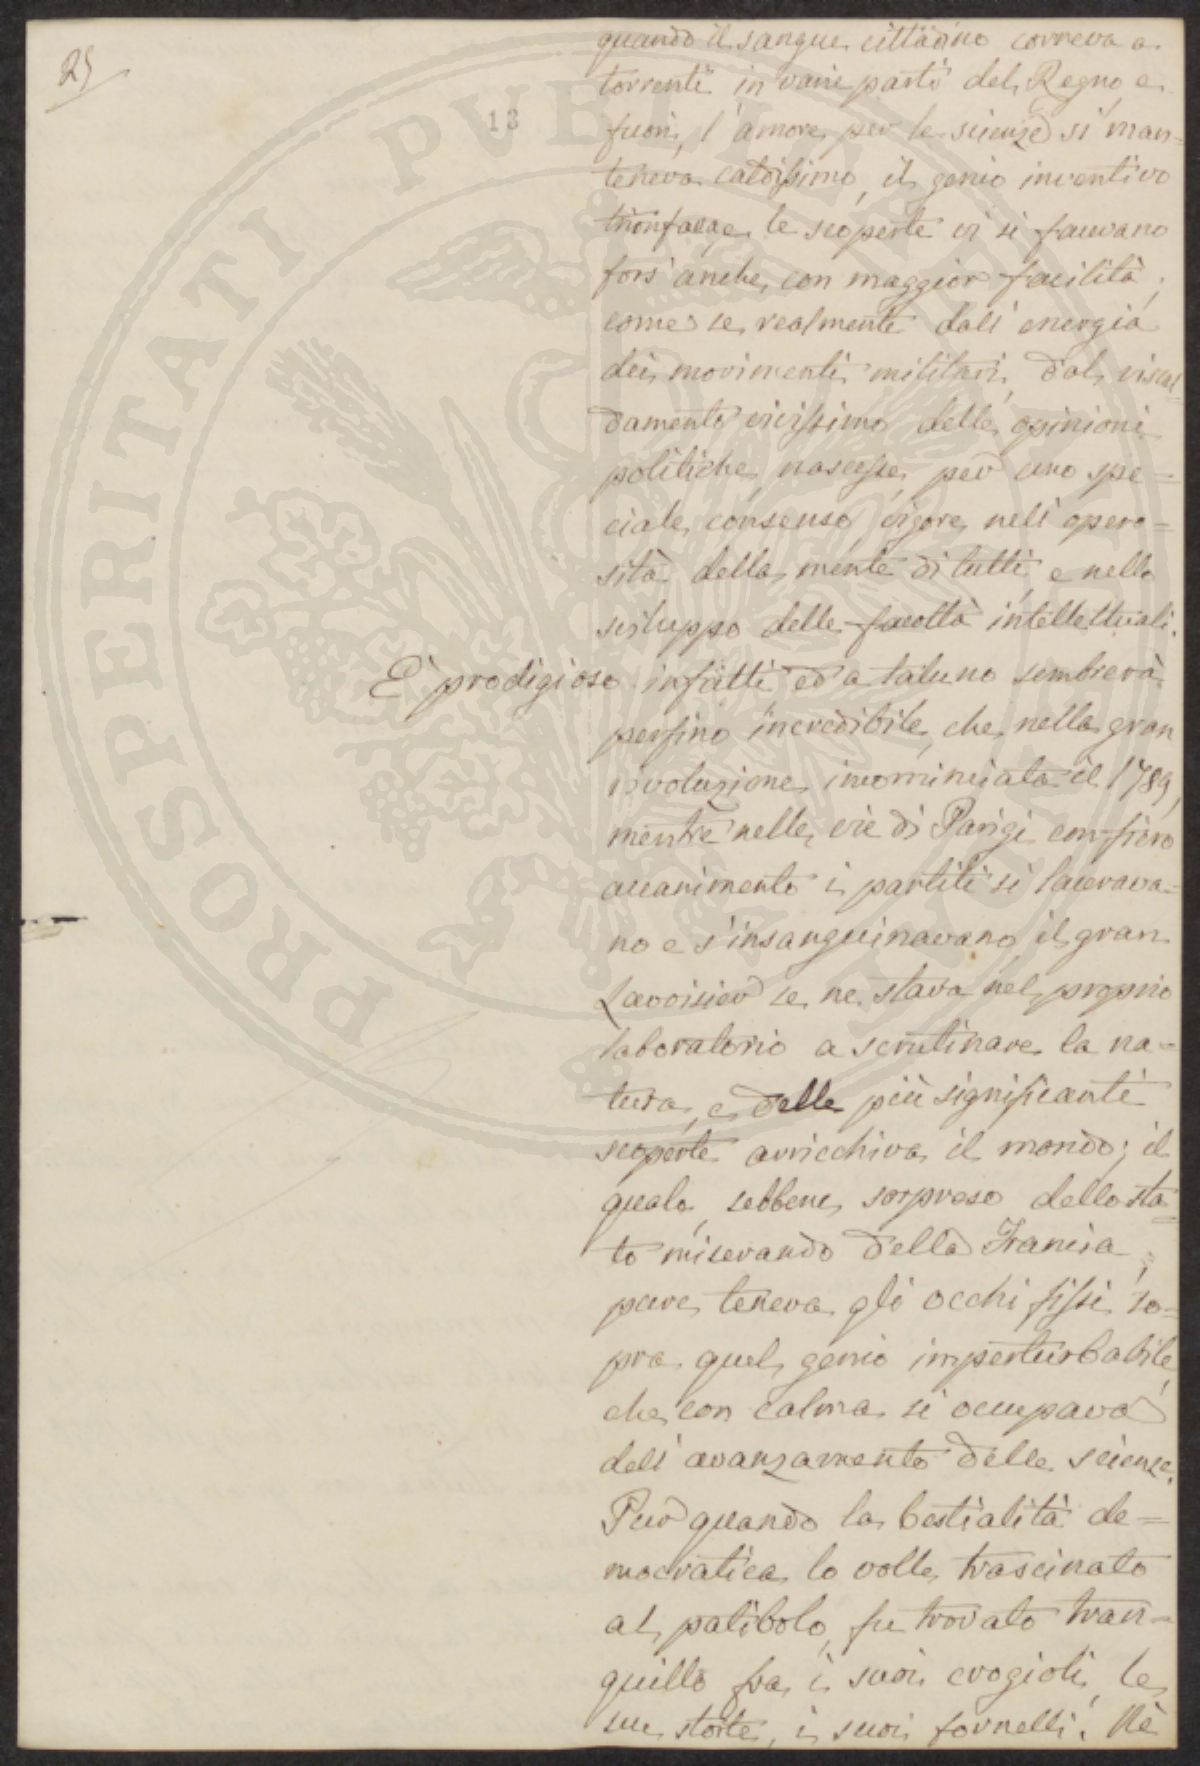 25
13
quando il sangue cittadino correva a
torrenti in varie parti del Regno e
fuori, l'amore per le scienze si man=
teneva caldissimo, il genio inventivo
trionfava, e le scoperte vi si facevano
fors'anche con maggior facilità,
come se realmente dall'energia
dei movimenti militari, dal riscal=
damento vivissimo delle opinioni
politiche, nascesse, per uno spe=
ciale consenso, vigore nell'opero=
sità della mente di tutti, e nello
sviluppo delle facoltà intellettuali.
È prodigioso infatti ed a taluno sembrerà
persino incredibile, che nella gran
rivoluzione, incominciata il 1789,
mentre nelle vie di Parigi con fiero
accanimento i partiti si lacerava=
no e s'insanguinavano, il gran
Lavoisier se ne stava nel proprio
laboratorio a scrutinare la na=
tura, e delle più significanti
scoperte arricchiva il mondo; il
quale, sebbene sorpreso dello sta=
to miserando della Francia,
pure teneva gli occhi fissi so=
pra quel genio imperturbabile,
che con calma si occupava
dell'avanzamento delle scienze.
Pur quando la bestialità de=
mocratica lo volle trascinato
al patibolo, fu trovato tran=
quillo fra i suoi crogioli, le
sue storte, i suoi fornelli. Nè
PROSPERITATI PVBLICAE